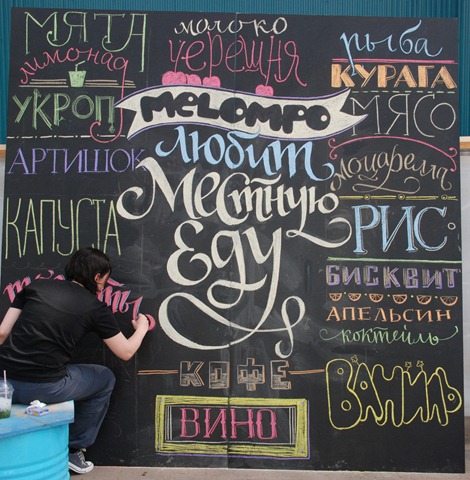 МЯТА
лимонад
УКРОП
АРТИШОК
КАПУСТА
молоко
черешня
MeLOMPO
любит
Местную
Еду
КОФЕ
ВИНО
рыба
КУРАГА
МЯСО
моцарелла
РИС
БИСКВИТ
АПЕЛЬСИН
коктейль
ВАНИЛЬ